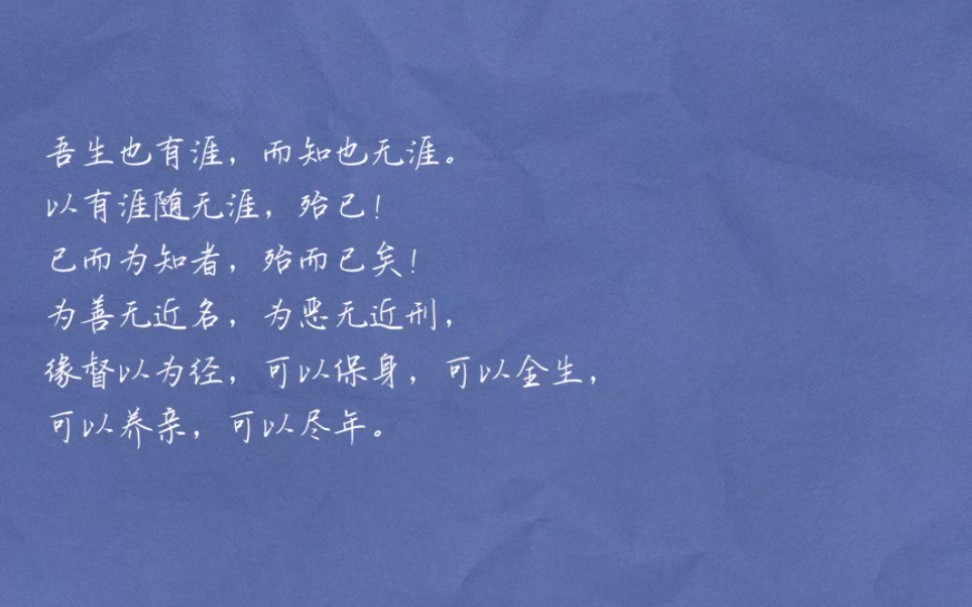 吾生也有涯，而知也无涯。
以有涯随无涯，殆已！
已而为知者，殆而已矣！
为善无近名，为恶无近刑，
缘督以为经，可以保身，可以全生，
可以养亲，可以尽年。